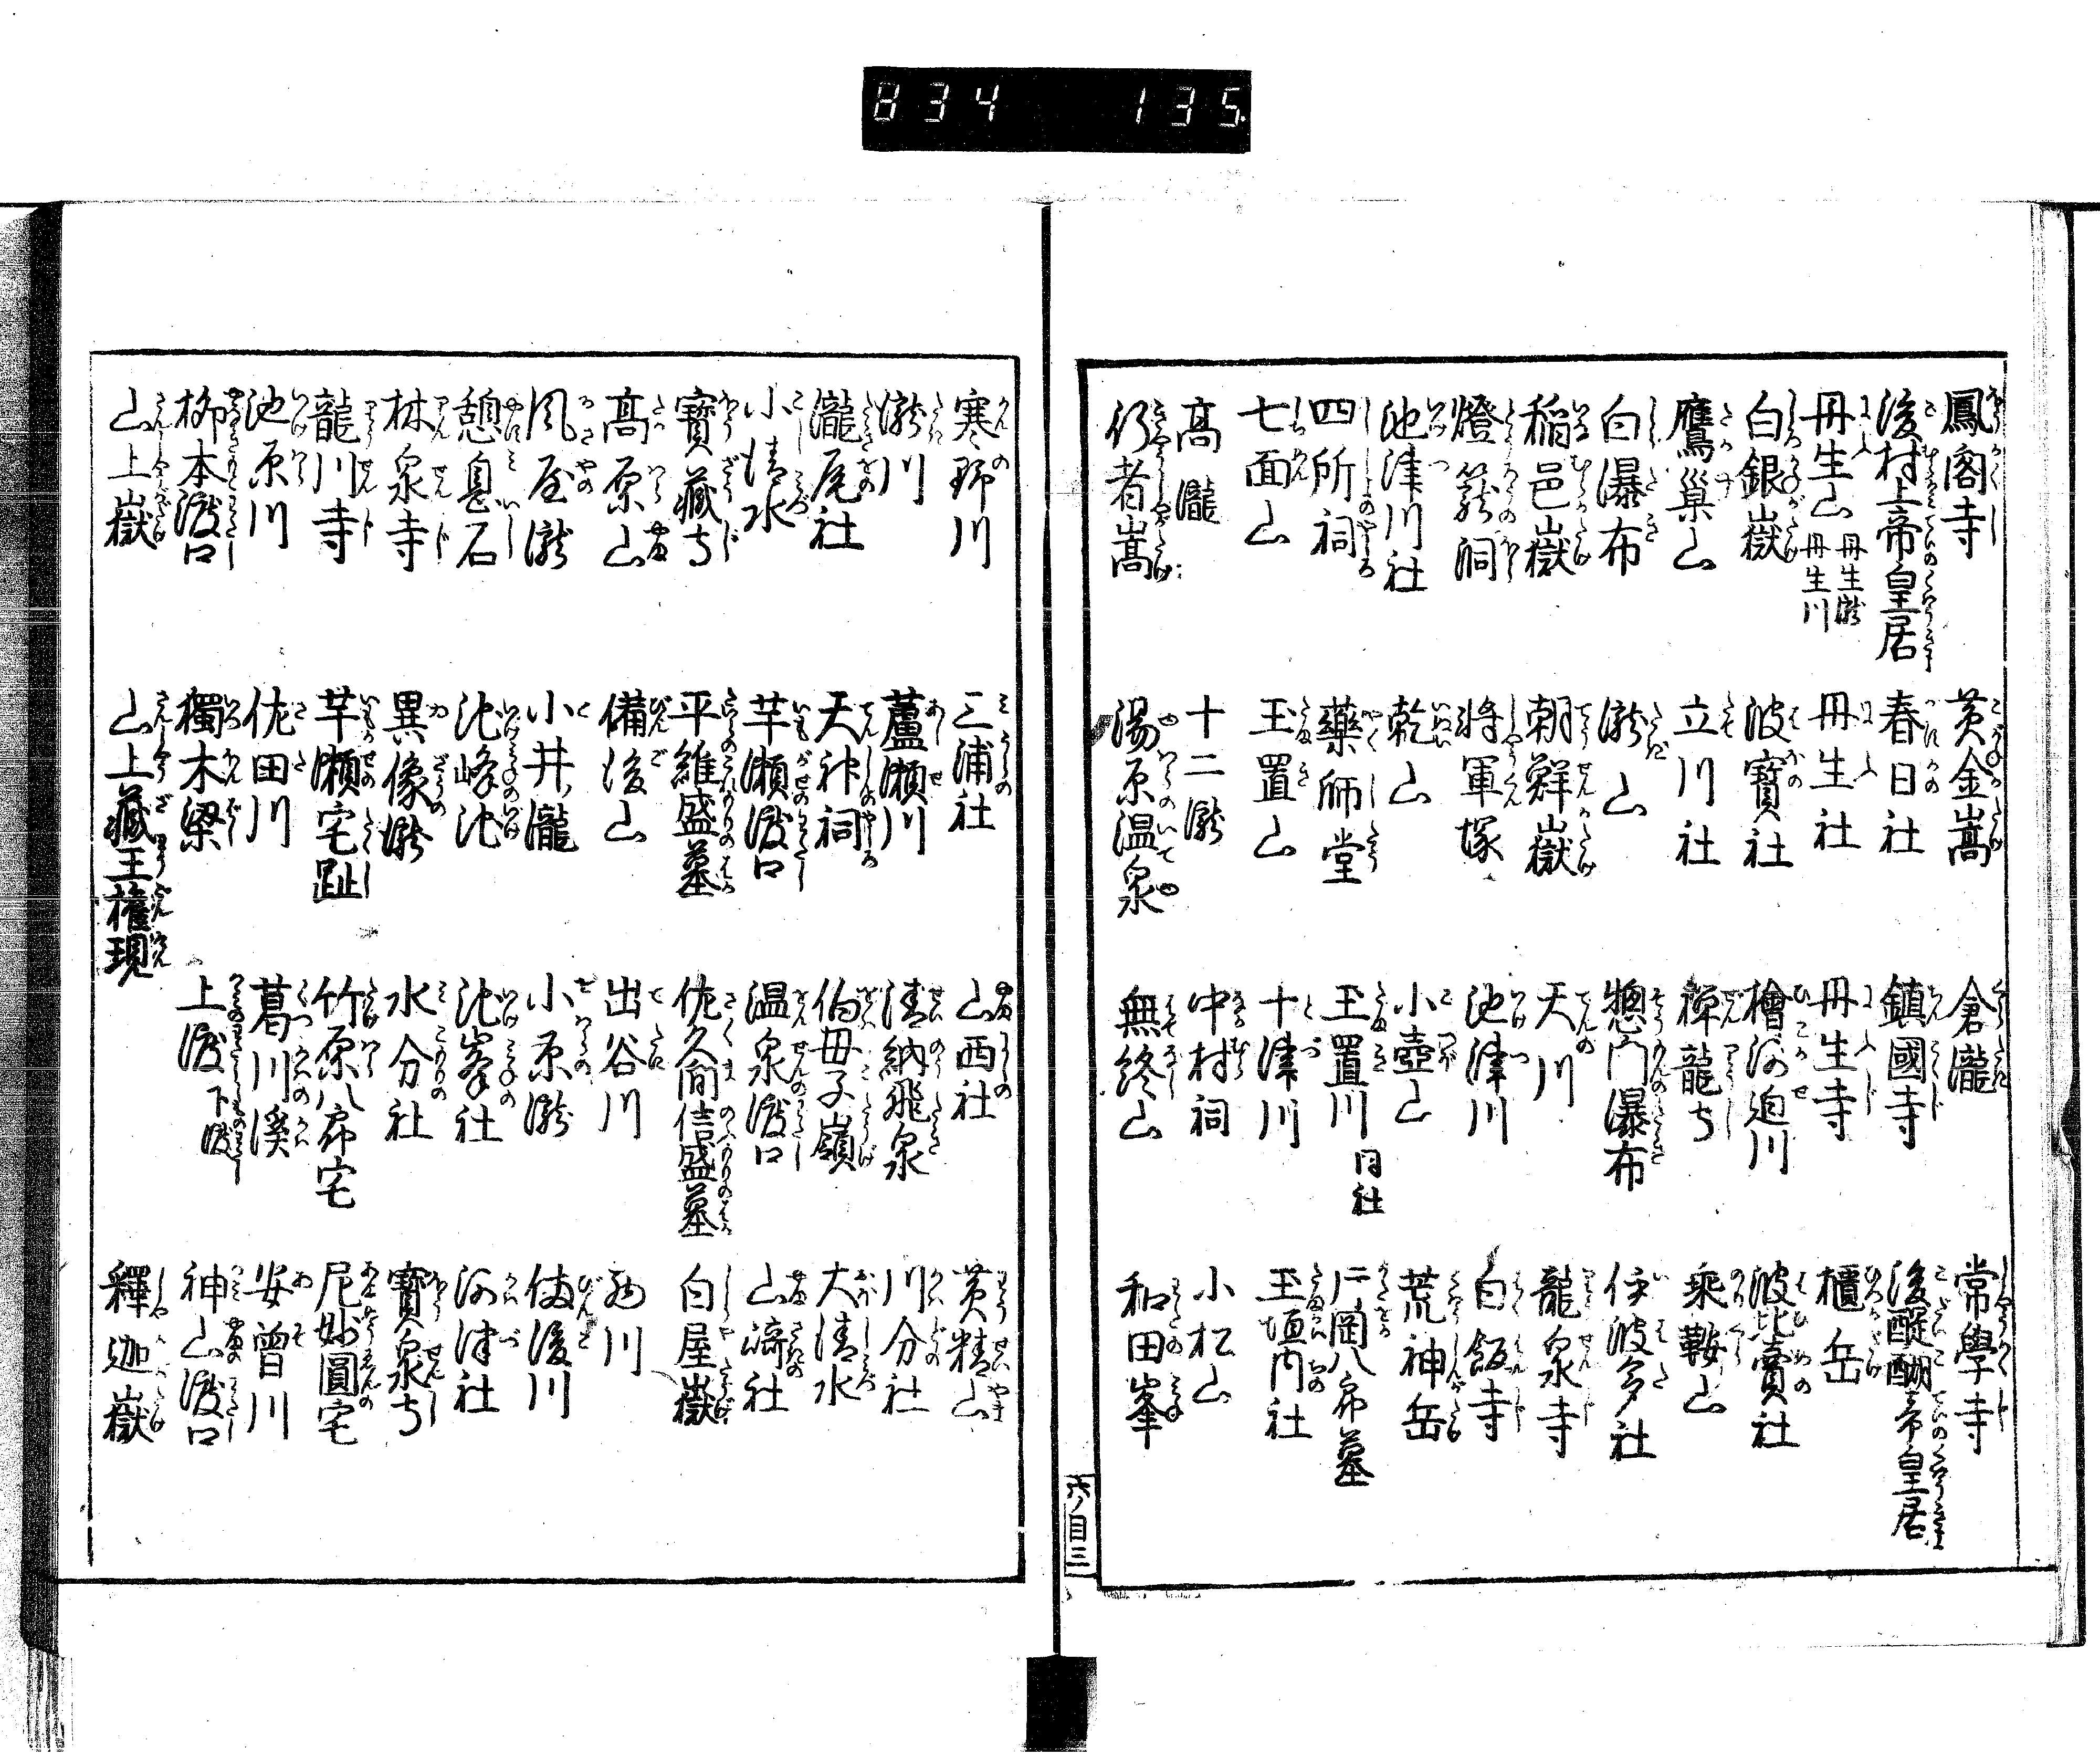 834 135
鳳閣寺 黄金嵩 倉瀧 常學寺
後村上帝皇居 春日社 鎮國寺 後醍醐帝皇居
丹生山 丹生瀧 丹生川 丹生社 丹生寺 櫃岳
白銀嶽 波寳社 檜河迫川 波比賣社
鷹巣山 立川社 禅龍寺 乗鞍山
白瀑布 瀧山 惣門瀑布 伊波多社
稲邑嶽 朝鮮嶽 天川 龍泉寺
燈籠洞 将軍塚 池津川 白飯寺
池津川社 乾山 小壺山 荒神岳
四所祠 藥師堂 玉置川 同社 片岡八郎墓
七面山 玉置山 十津川 玉垣内社
高瀧 十二瀧 中村祠 小松山
行者嵩 湯原温泉 無終山 和田峯
六ノ目三
寒野川 三浦社 山西社 黄精山
瀧川 蘆瀬川 清納飛泉 川分社
瀧尾社 天神祠 伯母子嶺 大清水
小清水 芋瀬渡口 温泉渡口 山﨑社
寳蔵寺 平維盛墓 佐久間信盛墓 白屋嶽
高原山 備後山 出谷川 西川
風屋瀧 小井瀧 小原瀧 備後川
憩息石 池峰池 池峯社 河津社
林泉寺 異像瀧 水分社 寳泉寺
龍川寺 芋瀬宅趾 竹原八郎宅 尼妙圓宅
池原川 佐田川 葛川溪 安曽川
柳本渡口 獨木梁 上渡 下渡 神山渡口
山上嶽 山上蔵王権現 釋迦嶽